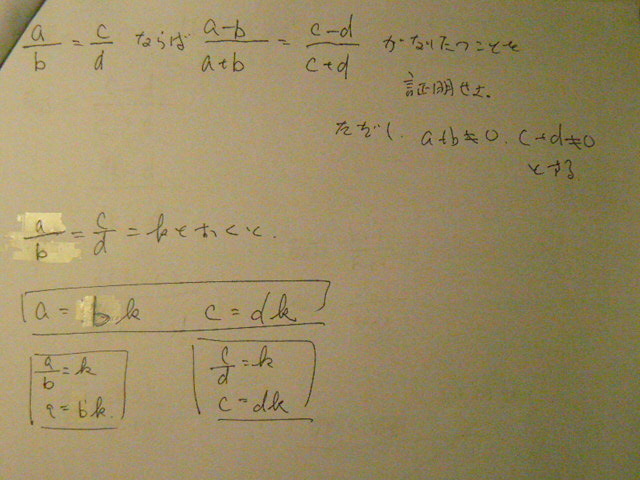 a/b = c/d ならば a-b/a+b = c-d/c+d がなりたつことを
証明せよ。
ただし、a+b≠0、c+d≠0
とする
a/b = c/d = kとおくと、
a = bk c = dk
a/b = k c/d = k
a = bk c = dk